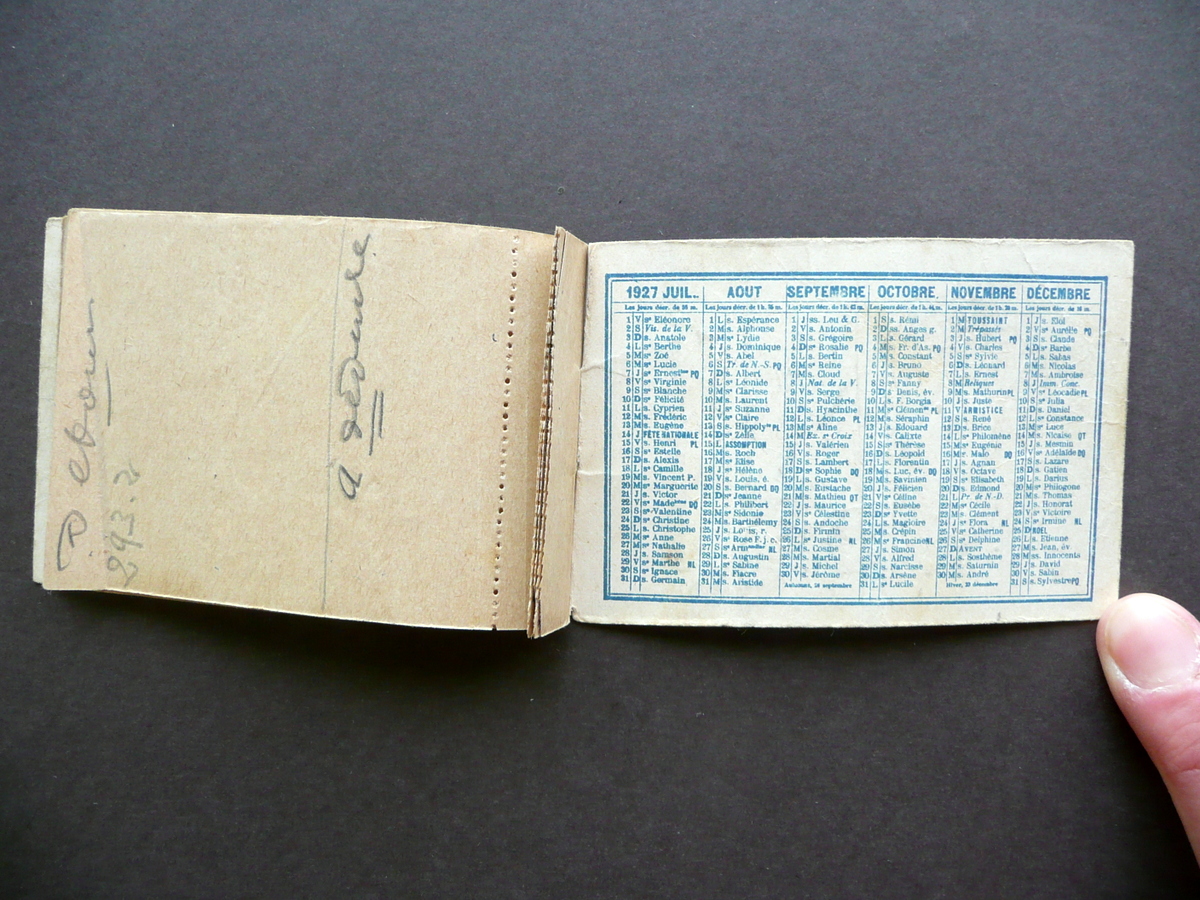 à
1927 JUIL.
Les jours décr. de 58 m.
1 V sᵉ Eléonore
2 S Vis. de la V.
3 D s. Anatole
4 L sᵉ Berthe
5 M sᵉ Zoé
6 M sᵉ Lucie
7 J sᵉ Ernestⁿᵉ PQ
8 V sᵉ Virginie
9 S sᵉ Blanche
10 D sᵉ Félicité
11 L s. Cyprien
12 M s. Frédéric
13 M s. Eugène
14 J FÊTE NATIONALE
15 V s. Henri PL
16 S sᵉ Estelle
17 D s. Alexis
18 L s. Camille
19 M s. Vincent P.
20 M sᵉ Marguerite
21 J s. Victor
22 V sᵉ Madelᵉⁱⁿᵉ DQ
23 S s. Valentine
24 D sᵉ Christine
25 L s. Christophe
26 M sᵉ Anne
27 M sᵉ Nathalie
28 J s. Samson
29 V sᵉ Marthe NL
30 S sᵉ Ignace
31 D s. Germain
AOUT
1 L s. Espérance
2 M s. Alphonse
3 M sᵉ Lydie
4 J s. Dominique
5 V s. Abel
6 S Tr. de N.-S. PQ
7 D s. Albert
8 L s. Léonide
9 M sᵉ Clarisse
10 M s. Laurent
11 J sᵉ Suzanne
12 V sᵉ Claire
13 S s. Hippolyᵗᵉ PL
14 D sᵉ Zélie
15 L ASSOMPTION
16 M s. Roch
17 M sᵉ Elise
18 J sᵉ Hélène
19 V s. Louis, é.
20 S s. Bernard DQ
21 D sᵉ Jeanne
22 L s. Philibert
23 M sᵉ Sidonie
24 M s. Barthélemy
25 J s. Louis, r.
26 V sᵉ Rose F. j. c.
27 S sᵉ Armᵃⁿᵈⁱⁿᵉ NL
28 D s. Augustin
29 L sᵉ Sabine
30 M s. Fiacre
31 M s. Aristide
SEPTEMBRE
1 J ss. Leu & G.
2 V s. Antonin
3 S s. Grégoire
4 D sᵉ Rosalie PQ
5 L s. Bertin
6 M sᵉ Reine
7 M s. Cloud
8 J Nat. de la V.
9 V s. Serge
10 S sᵉ Pulchérie
11 D s. Hyacinthe
12 L s. Léonce PL
13 M sᵉ Aline
14 M Ex. sᵉ Croix
15 J s. Valérien
16 V s. Roger
17 S s. Lambert
18 D sᵉ Sophie DQ
19 L s. Gustave
20 M s. Eustache
21 M s. Mathieu QT
22 J s. Maurice
23 V s. Célestine
24 S s. Andoche
25 D s. Firmin
26 L s. Justine NL
27 M s. Cosme
28 M s. Martial
29 J s. Michel
30 V s. Jérôme
OCTOBRE
Les jours décr. de 1 h. 44 m.
1 S s. Rémi
2 D ss. Anges g.
3 L s. Gérard
4 M s. Fr. d'As. PQ
5 M s. Constant
6 J s. Bruno
7 V s. Auguste
8 S sᵉ Fanny
9 D s. Denis, év.
10 L s. F. Borgia
11 M sᵉ Clémenᶜᵉ PL
12 M s. Séraphin
13 J s. Edouard
14 V s. Calixte
15 S sᵉ Thérèse
16 D s. Léopold
17 L s. Florentin
18 M s. Luc, év. DQ
19 M s. Savinien
20 J s. Félicien
21 V sᵉ Céline
22 S s. Eusèbe
23 D sᵉ Yvette
24 L s. Magloire
25 M s. Crépin
26 M sᵉ Francine NL
27 J s. Simon
28 V s. Alfred
29 S s. Narcisse
30 D s. Arsène
31 L sᵉ Lucile
NOVEMBRE
1 M TOUSSAINT
2 M Trépassés
3 J s. Hubert PQ
4 V s. Charles
5 S sᵉ Sylvie
6 D s. Léonard
7 L s. Ernest
8 M Reliques
9 M s. Mathurin PL
10 J s. Juste
11 V ARMISTICE
12 S s. René
13 D s. Brice
14 L sᵉ Philomène
15 M sᵉ Eugénie
16 M sᵉ Malo DQ
17 J s. Agnan
18 V s. Octave
19 S sᵉ Elisabeth
20 D s. Edmond
21 L Pr. de N.-D.
22 M sᵉ Cécile
23 M s. Clément
24 J sᵉ Flora NL
25 V sᵉ Catherine
26 S sᵉ Delphine
27 D AVENT
28 L s. Sosthème
29 M s. Saturnin
30 M s. André
Hiver, 22 décembre
DÉCEMBRE
1 J s. Eloi
2 V sᵉ Aurélie PQ
3 S s. Claude
4 D sᵉ Barbe
5 L s. Sabas
6 M s. Nicolas
7 M s. Ambroise
8 J Imm. Conc.
9 V sᵉ Léocadie PL
10 S sᵉ Julia
11 D s. Daniel
12 L sᵉ Constance
13 M sᵉ Luce
14 M s. Nicaise QT
15 J s. Mesmin
16 V sᵉ Adélaïde DQ
17 S s. Lazare
18 D s. Gatien
19 L s. Darius
20 M sᵉ Philogone
21 M s. Thomas
22 J s. Honorat
23 V sᵉ Victoire
24 S sᵉ Irmine NL
25 D NOEL
26 L s. Etienne
27 M s. Jean, év.
28 M ss. Innocents
29 J s. David
30 V s. Sabin
31 S s. Sylvestre PQ